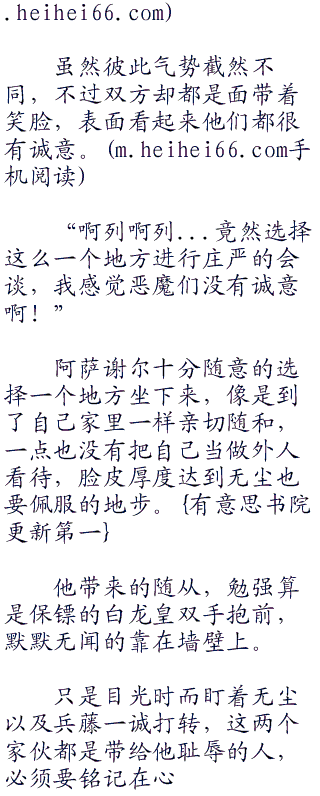 .heihei66.com)
虽然彼此气势截然不
同，不过双方却都是面带着
笑脸，表面看起来他们都很
有诚意。(m.heihei66.com手
机阅读)
“啊列啊列...竟然选择
这么一个地方进行庄严的会
谈，我感觉恶魔们没有诚意
啊！”
阿萨谢尔十分随意的选
择一个地方坐下来，像是到
了自己家里一样亲切随和，
一点也没有把自己当做外人
看待，脸皮厚度达到无尘也
要佩服的地步。{有意思书院
更新第一}
他带来的随从，勉强算
是保镖的白龙皇双手抱前，
默默无闻的靠在墙壁上。
只是目光时而盯着无尘
以及兵藤一诚打转，这两个
家伙都是带给他耻辱的人，
必须要铭记在心